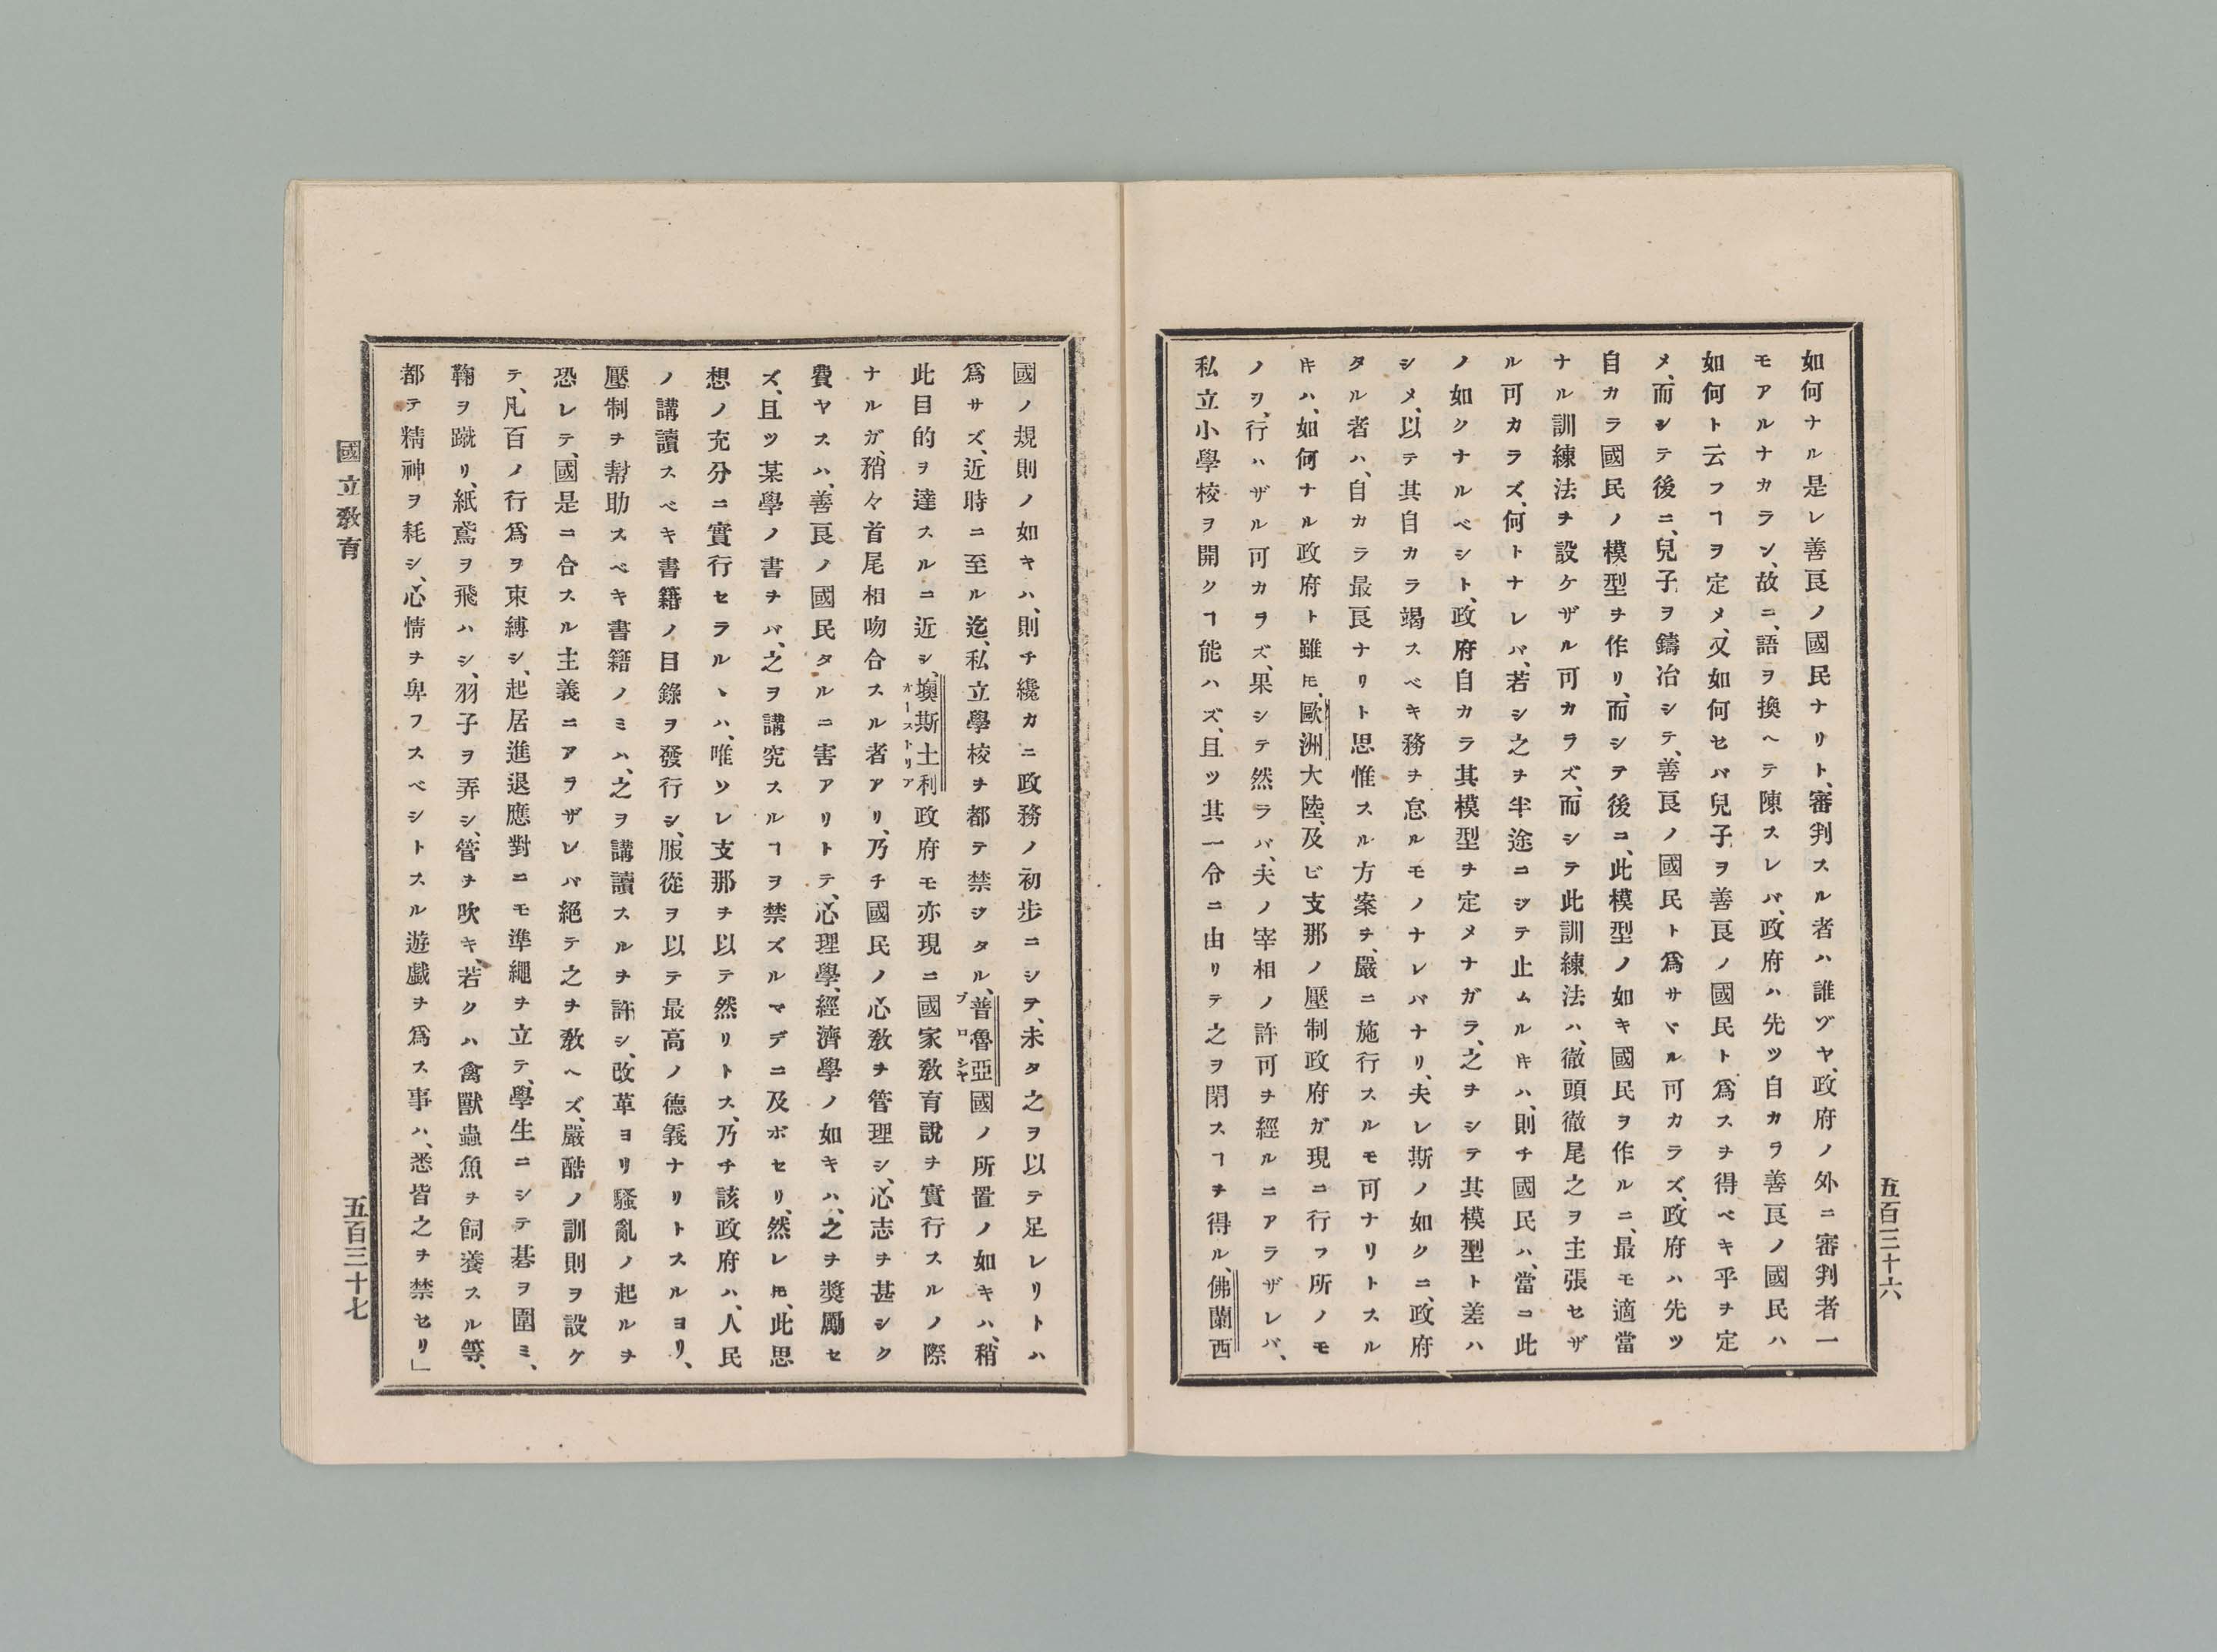 如何ナル是レ善良ノ國民ナリト、審判スル者ハ誰ヅヤ、政府ノ外ニ審判者一
モアルナカラン、故ニ、語ヲ換ヘテ陳スレバ、政府ハ先ツ自カラ善良ノ國民ハ
如何ト云フヿヲ定メ、又如何セバ兒子ヲ善良ノ國民ト爲スヲ得ベキ乎ヲ定
メ、而シテ後ニ、兒子ヲ鑄冶シテ、善良ノ國民ト爲サヾル可カラズ、政府ハ先ツ
自カラ國民ノ模型ヲ作リ、而シテ後ニ、此模型ノ如キ國民ヲ作ルニ、最モ適當
ナル訓練法ヲ設ケザル可カラズ、而シテ此訓練法ハ、徹頭徹尾之ヲ主張セザ
ル可カラズ、何トナレバ、若シ之ヲ半途ニシテ止ムルキハ、則チ國民ハ、當ニ此
ノ如クナルベシト、政府自カラ其模型ヲ定メナガラ、之ヲシテ其模型ト差ハ
シメ、以テ其自カラ竭スベキ務ヲ怠ルモノナレバナリ、夫レ斯ノ如クニ、政府
タル者ハ、自カラ最良ナリト思惟スル方案ヲ、嚴ニ施行スルモ可ナリトスル
キハ、如何ナル政府ト雖𪜈、歐洲大陸、及ビ支那ノ壓制政府ガ現ニ行フ所ノモ
ノヲ、行ハザル可カラズ、果シテ然ラバ、夫ノ宰相ノ許可ヲ經ルニアラザレバ、
私立小學校ヲ開クヿ能ハズ、且ツ其一令ニ由リテ之ヲ閉スヿヲ得ル、佛蘭西
五百三十六
國ノ規則ノ如キハ、則チ纔カニ政務ノ初步ニシテ、未タ之ヲ以テ足レリトハ
爲サズ、近時ニ至ル迄、私立學校ヲ都テ禁ジタル、普魯亞國ノ所置ノ如キハ、稍
プロシヤ
此目的ヲ達スルニ近シ、墺斯土利政府モ亦現ニ國家敎育說ヲ實行スルノ際
オーストリア
ナルガ、稍々首尾相吻合スル者アリ、乃チ國民ノ心敎ヲ管理シ、心志ヲ甚シク
費ヤスハ、善良ノ國民タルニ害アリトテ、心理學、經濟學ノ如キハ、之ヲ奬勵セ
ズ、且ツ某學ノ書ヲバ、之ヲ講究スルヿヲ禁ズルマデニ及ボセリ、然レ𪜈、此思
想ノ充分ニ實行セラルヽハ、唯ソレ支那ヲ以テ然リトス、乃チ該政府ハ、人民
ノ講讀スベキ書籍ノ目錄ヲ發行シ、服從ヲ以テ最高ノ德義ナリトスルヨリ、
壓制ヲ幇助スベキ書籍ノミハ、之ヲ講讀スルヲ許シ、改革ヨリ騷亂ノ起ルヲ
恐レテ、國是ニ合スル主義ニアラザレバ絕テ之ヲ敎ヘズ、嚴酷ノ訓則ヲ設ケ
テ、凡百ノ行爲ヲ束縛シ、起居進退應對ニモ準繩ヲ立テ、學生ニシテ碁ヲ圍ミ、
鞠ヲ蹴リ、紙鳶ヲ飛ハシ、羽子ヲ弄シ、管ヲ吹キ、若クハ禽獸蟲魚ヲ飼養スル等、
都テ精神ヲ耗シ、心情ヲ卑フスベシトスル遊戲ヲ爲ス事ハ、悉皆之ヲ禁セリ」
國立敎育
五百三十七